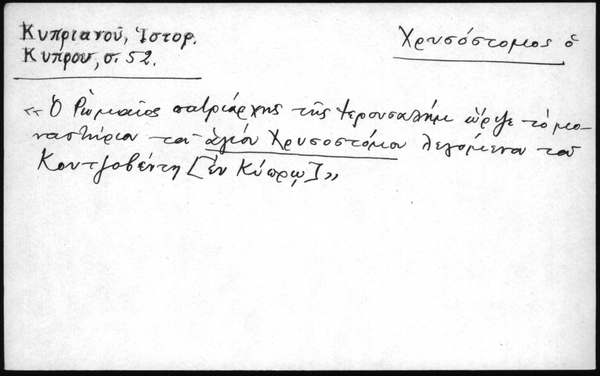 Κυπριανοῦ, Ἱστορ.
Κύπρου, σ. 52.
Χρυσόστομος ὁ
« Ὁ Ῥωμαῖος πατριάρχης τῆς Ἱερουσαλήμ ὥριζε τὸ μο-
ναστήριον τοῦ ἁγίου Χρυσοστόμου λεγόμενον τοῦ
Κουτζοβέντη [ἐν Κύπρῳ] »